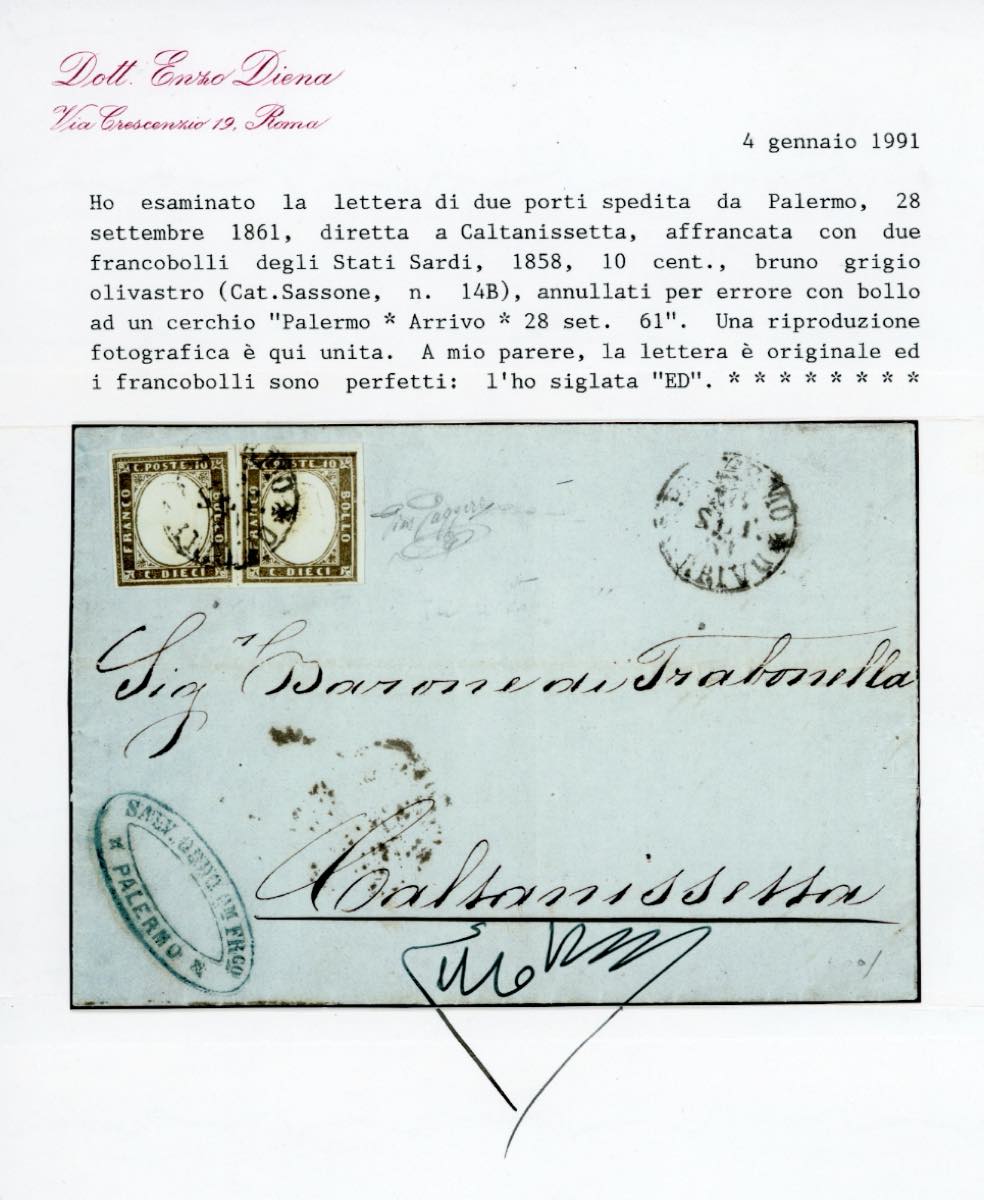 Dott. Enzo Diena
Via Crescenzio 19, Roma
4 gennaio 1991
Ho esaminato la lettera di due porti spedita da Palermo, 28
settembre 1861, diretta a Caltanissetta, affrancata con due
francobolli degli Stati Sardi, 1858, 10 cent., bruno grigio
olivastro (Cat.Sassone, n. 14B), annullati per errore con bollo
ad un cerchio "Palermo * Arrivo * 28 set. 61". Una riproduzione
fotografica è qui unita. A mio parere, la lettera è originale ed
i francobolli sono perfetti: l'ho siglata "ED". * * * * * * * *
C. POSTE. 10
FRANCO
BOLLO
C. DIECI
C. POSTE. 10
FRANCO
BOLLO
C. DIECI
ARRIVO
Sig.r Barone di Trabonella
Caltanissetta
SALV.
PALERMO